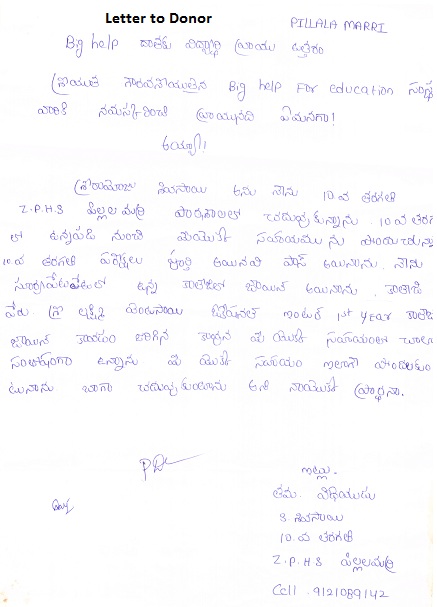 Letter to Donor
PILLALA MARRI
Big help దాతకు విద్యార్థి వ్రాయు ఉత్తరం
శ్రీయుత గౌరవనీయులైన Big help For education సంస్థ
వారికి నమస్కరించి వ్రాయునది ఏమనగా!
అయ్యా!
శివసాయి అను నేను 10 వ తరగతి
Z.P.H.S పిల్లలమర్రి పాఠశాలలో చదువుకున్నాను. 10 వ తర
లో ఉన్నపుడు నుంచి మీయొక్క సహాయము ను
10 వ తరగతి పరీక్షలు పూర్తి అయినవి పాస్ అయినాను. నేను
సూర్యాపేట లో ఉన్న కాలేజిలో జాయిన్ అయినాను.
పేరు. శ్రీ లక్ష్మి ఇంటర్ 1st year
జాయిన్ కావడం జరిగిన మీ యొక్క సహాయంతో చాలా
సంతోషంగా ఉన్నాను మీ యొక్క సహాయం ఇలాగే
బాగా చదువుకుంటాను అని నాయొక్క ప్రార్థన.
ఇట్లు.
తమ. విధేయుడు
S. శివసాయి
10. వ తరగతి
Z.P.H.S పిల్లలమర్రి
Cell. 9121089142